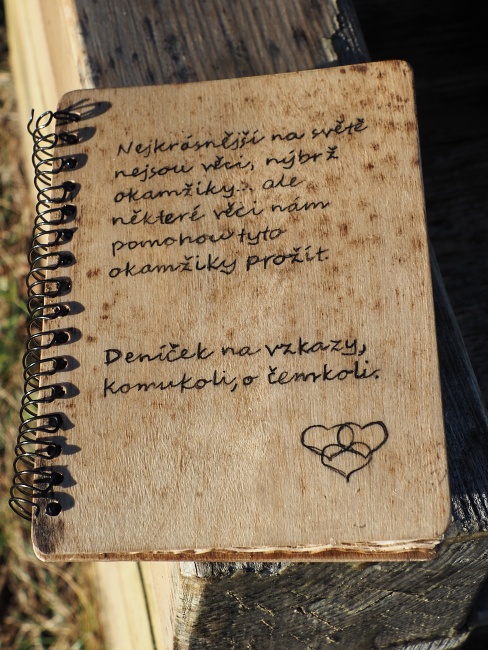 Nejkrásnější na světě
nejsou věci, nýbrž
okamžiky... ale
některé věci nám
pomohou tyto
okamžiky prožít.
Deníček na vzkazy,
komukoli, o čemkoli.